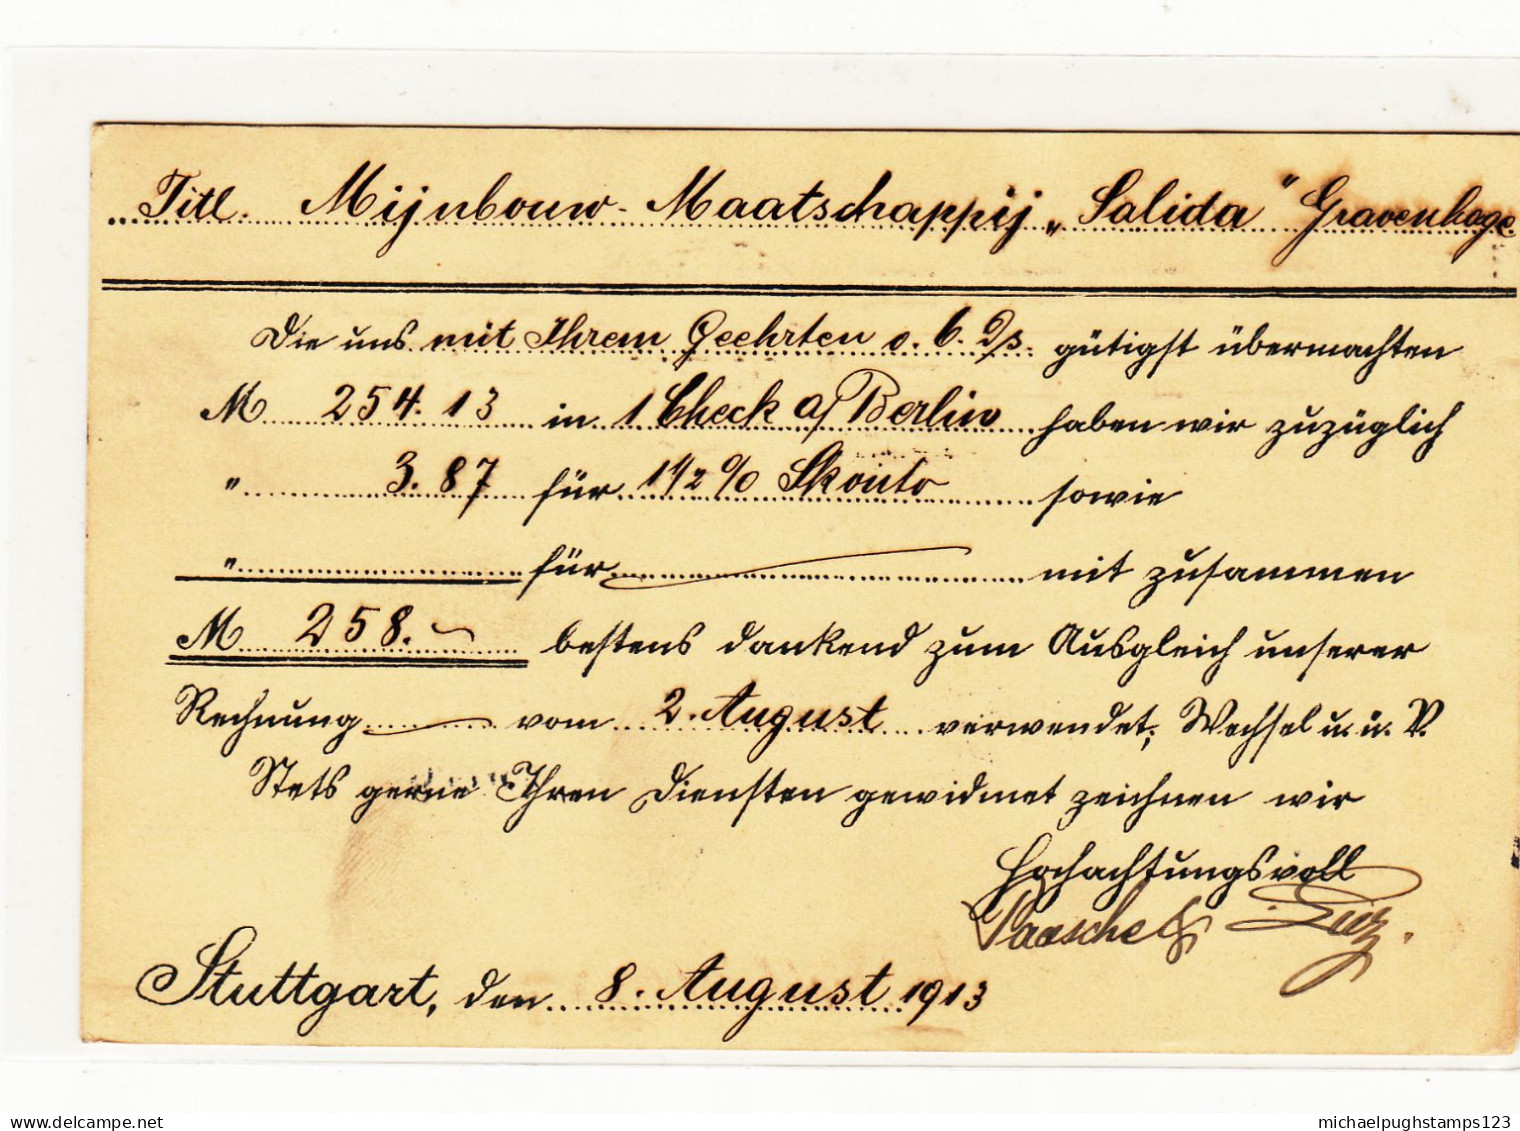 Titl. Mijnbouw-Maatschappij „Salida" Gravenhage
Die uns mit Ihrem Geehrten v. 6. ds. gütigst übermachten
M 254.13 in 1 Check a/ Berlin haben wir zuzüglich
" 3.87 für 1 1/2 % Skonto sowie
" für mit zusammen
M 258.– bestens dankend zum Ausgleich unserer
Rechnung vom 2. August verwendet; Wechsel u. ü. V.
Stets gerne Ihren Diensten gewidmet zeichnen wir
Hochachtungsvoll
Paasche &
Stuttgart, den 8. August 1913
michaelpughstamps123